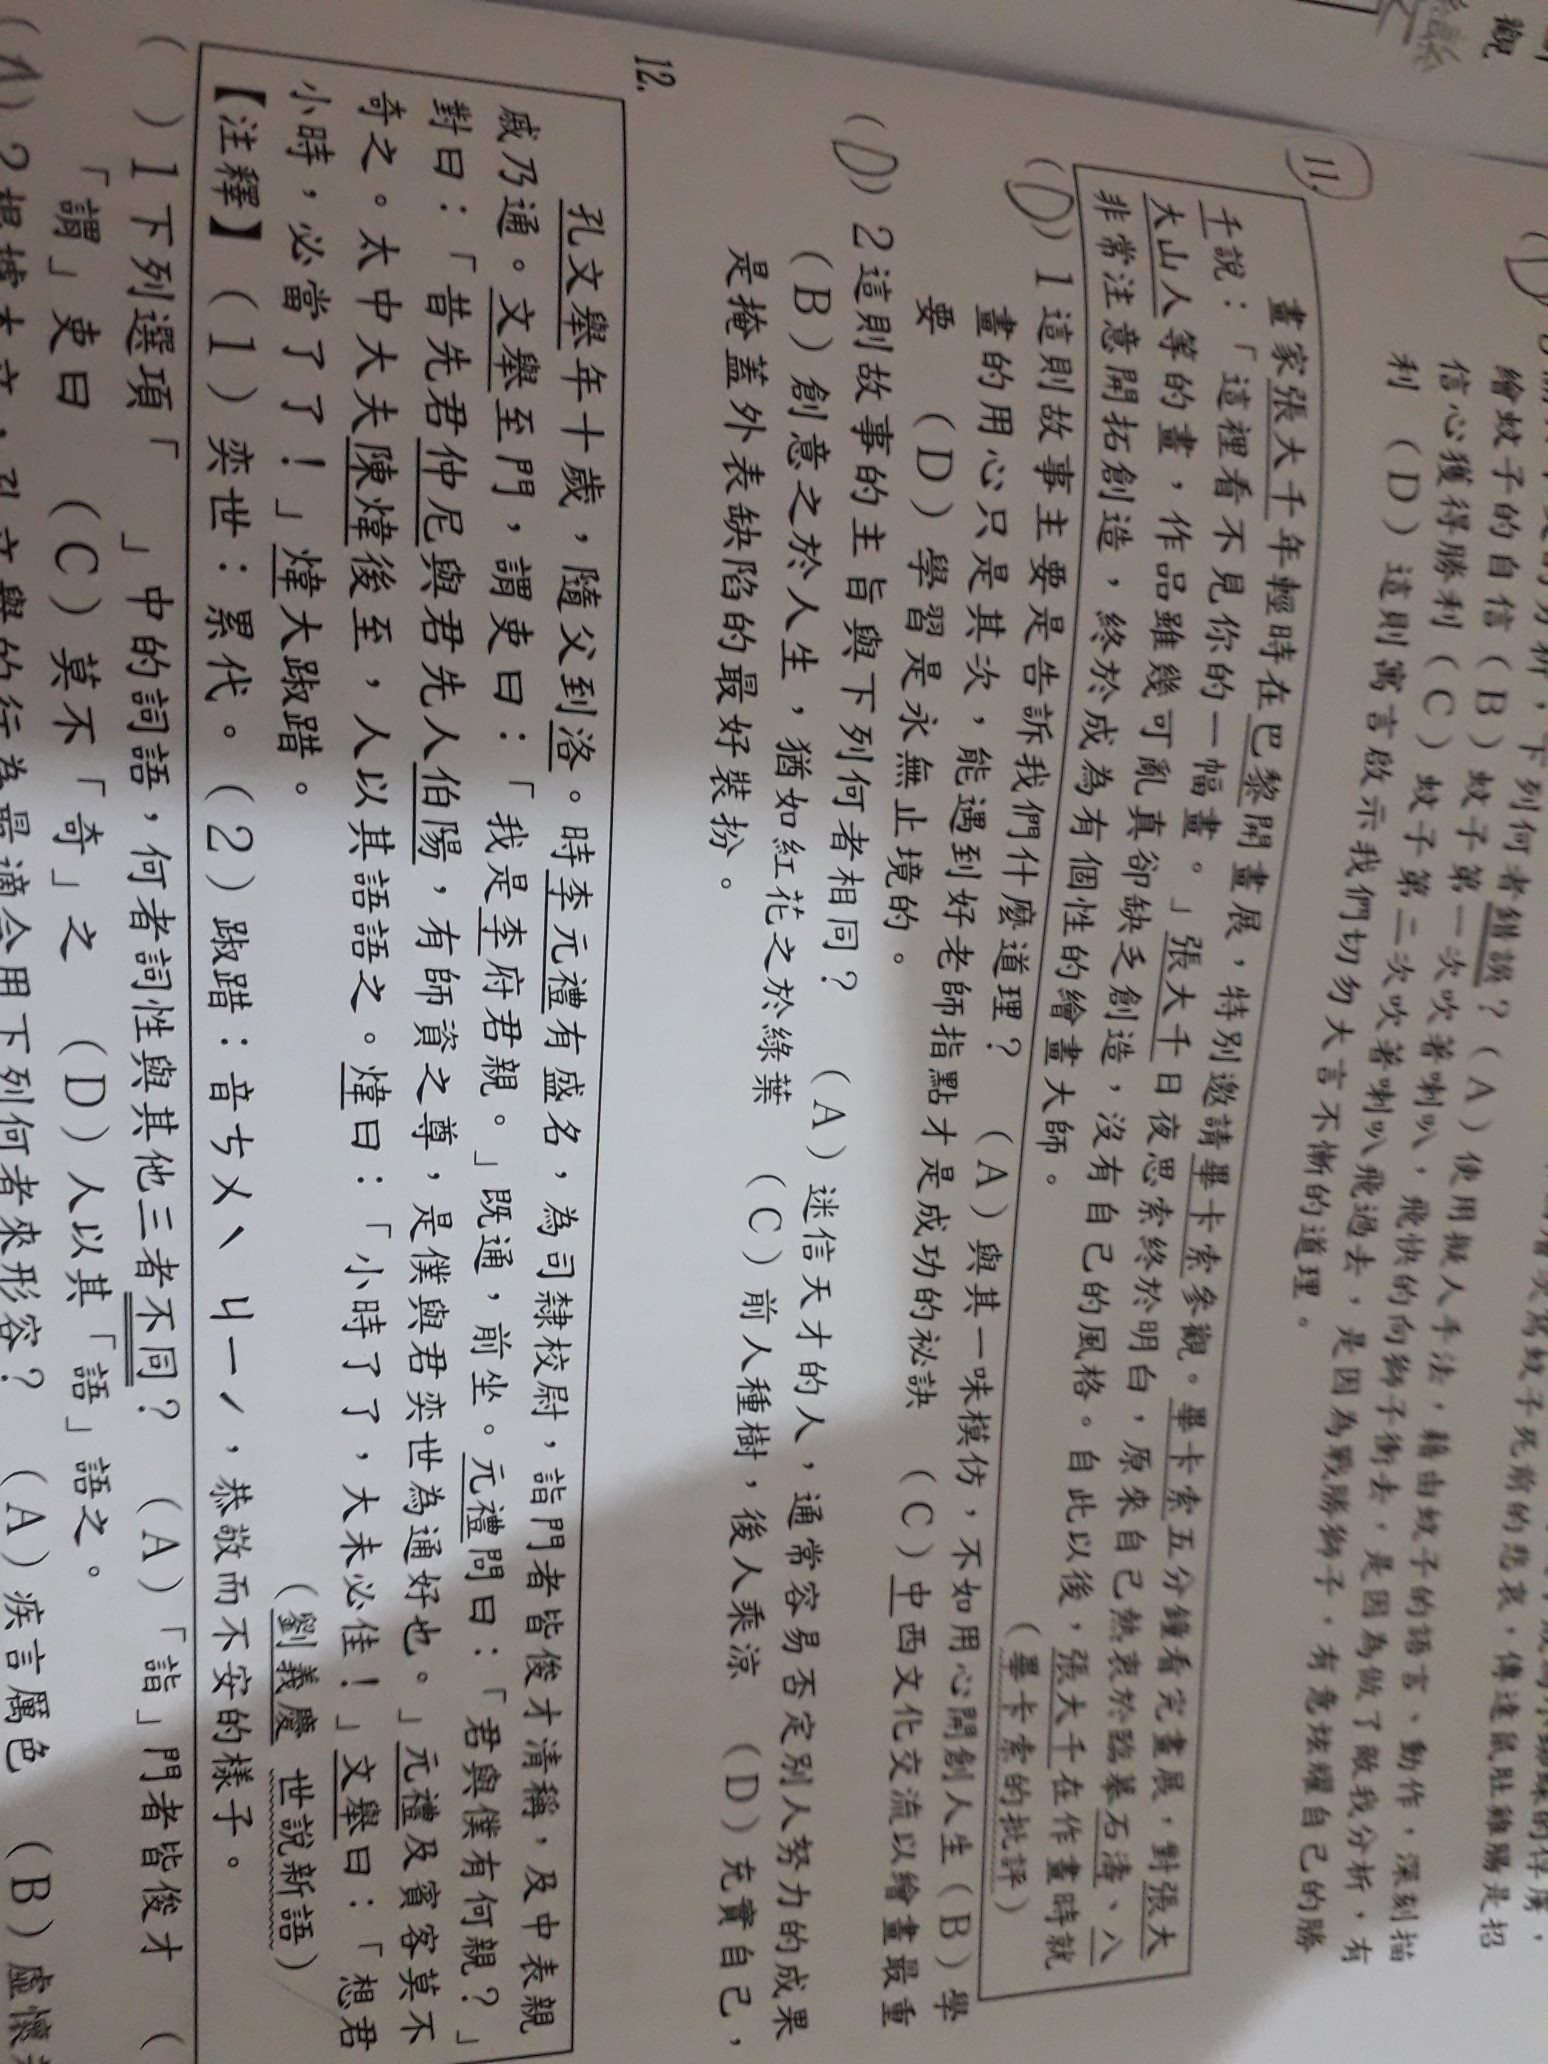 觀
下列何者錯誤？（A）使用擬人手法，藉由蚊子的語言、動作，深刻描
繪蚊子的自信（B）蚊子第一次吹著喇叭，飛快的向獅子衝去，是因為做了敵我分析，有
信心獲得勝利（C）蚊子第二次吹著喇叭飛過去，是因為戰勝獅子，有意炫耀自己的勝
利　（D）這則寓言啟示我們切勿大言不慚的道理。
11.
畫家張大千年輕時在巴黎開畫展，特別邀請畢卡索參觀。畢卡索五分鐘看完畫展，對張大
千說：「這裡看不見你的一幅畫。」張大千日夜思索終於明白，原來自己熱衷於臨摹石濤、八
大山人等的畫，作品雖幾可亂真卻缺乏創造，沒有自己的風格。自此以後，張大千在作畫時就
非常注意開拓創造，終於成為有個性的繪畫大師。　（畢卡索的批評）
（D）1這則故事主要是告訴我們什麼道理？　（A）與其一味模仿，不如用心開創人生（B）學
畫的用心只是其次，能遇到好老師指點才是成功的祕訣　（C）中西文化交流以繪畫最重
要　（D）學習是永無止境的。
（D）2這則故事的主旨與下列何者相同？　（A）迷信天才的人，通常容易否定別人努力的成果
（B）創意之於人生，猶如紅花之於綠葉　（C）前人種樹，後人乘涼　（D）充實自己，
是掩蓋外表缺陷的最好裝扮。
12.
孔文舉年十歲，隨父到洛。時李元禮有盛名，為司隸校尉，詣門者皆俊才清稱，及中表親
戚乃通。文舉至門，謂吏曰：「我是李府君親。」既通，前坐。元禮問曰：「君與僕有何親？」
對曰：「昔先君仲尼與君先人伯陽，有師資之尊，是僕與君奕世為通好也。」元禮及賓客莫不
奇之。太中大夫陳煒後至，人以其語語之。煒曰：「小時了了，大未必佳！」文舉曰：「想君
小時，必當了了！」煒大踧踖。　（劉義慶　世說新語）
【注釋】（1）奕世：累代。（2）踧踖：音ㄘㄨˋ ㄐㄧˊ，恭敬而不安的樣子。
（　）1下列選項「　」中的詞語，何者詞性與其他三者不同？　（A）「詣」門者皆俊才　（
「謂」吏曰　（C）莫不「奇」之　（D）人以其「語」語之。
孔文舉的行為最適合用下列何者來形容？　（A）疾言厲色　（B）虛懷